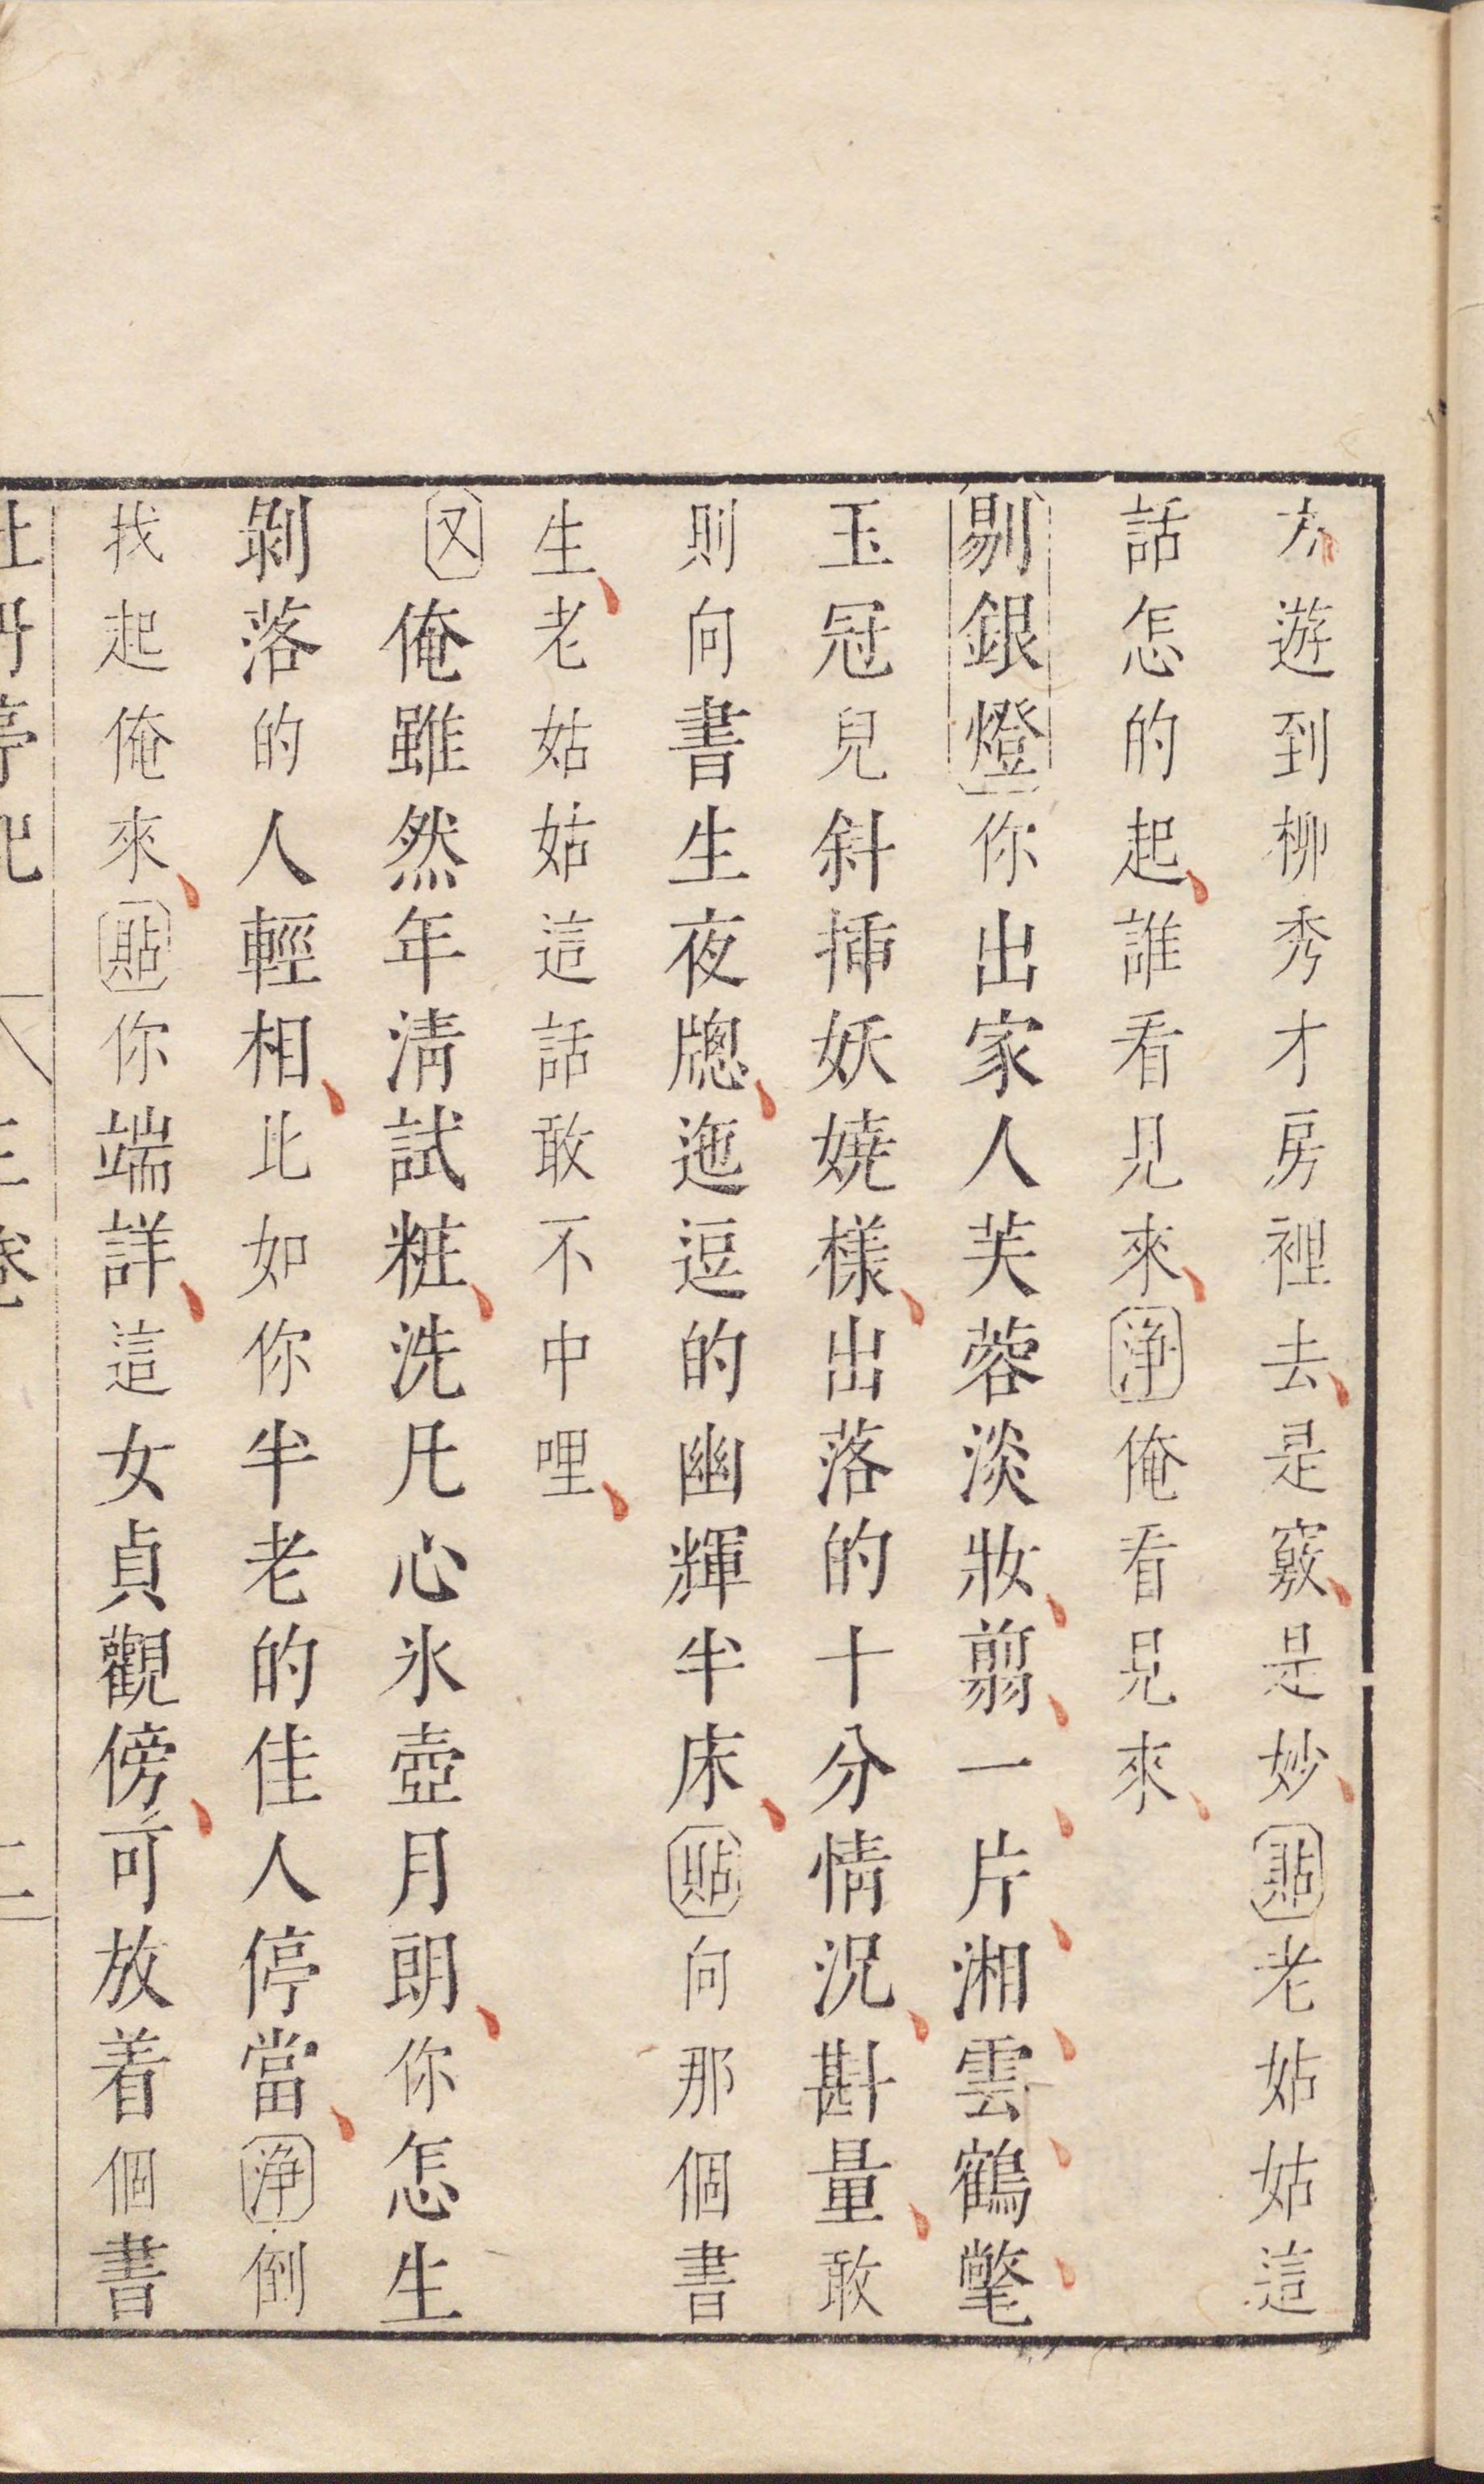 方遊到柳秀才房裡去是竅是妙貼老姑姑這
話怎的起誰看見來淨俺看見來
剔銀燈你出家人芙蓉淡妝翦一片湘雲鶴氅
玉冠兒斜插妖嬈樣出落的十分情況斟量敢
則向書生夜牕迤逗的幽輝半床貼向那個書
生老姑姑這話敢不中哩
又俺雖然年清試粧洗凡心氷壺月朗你怎生
剝落的人輕相比如你半老的佳人停當淨倒
找起俺來貼你端詳這女貞觀傍可放着個書
牡丹亭記 三卷 二